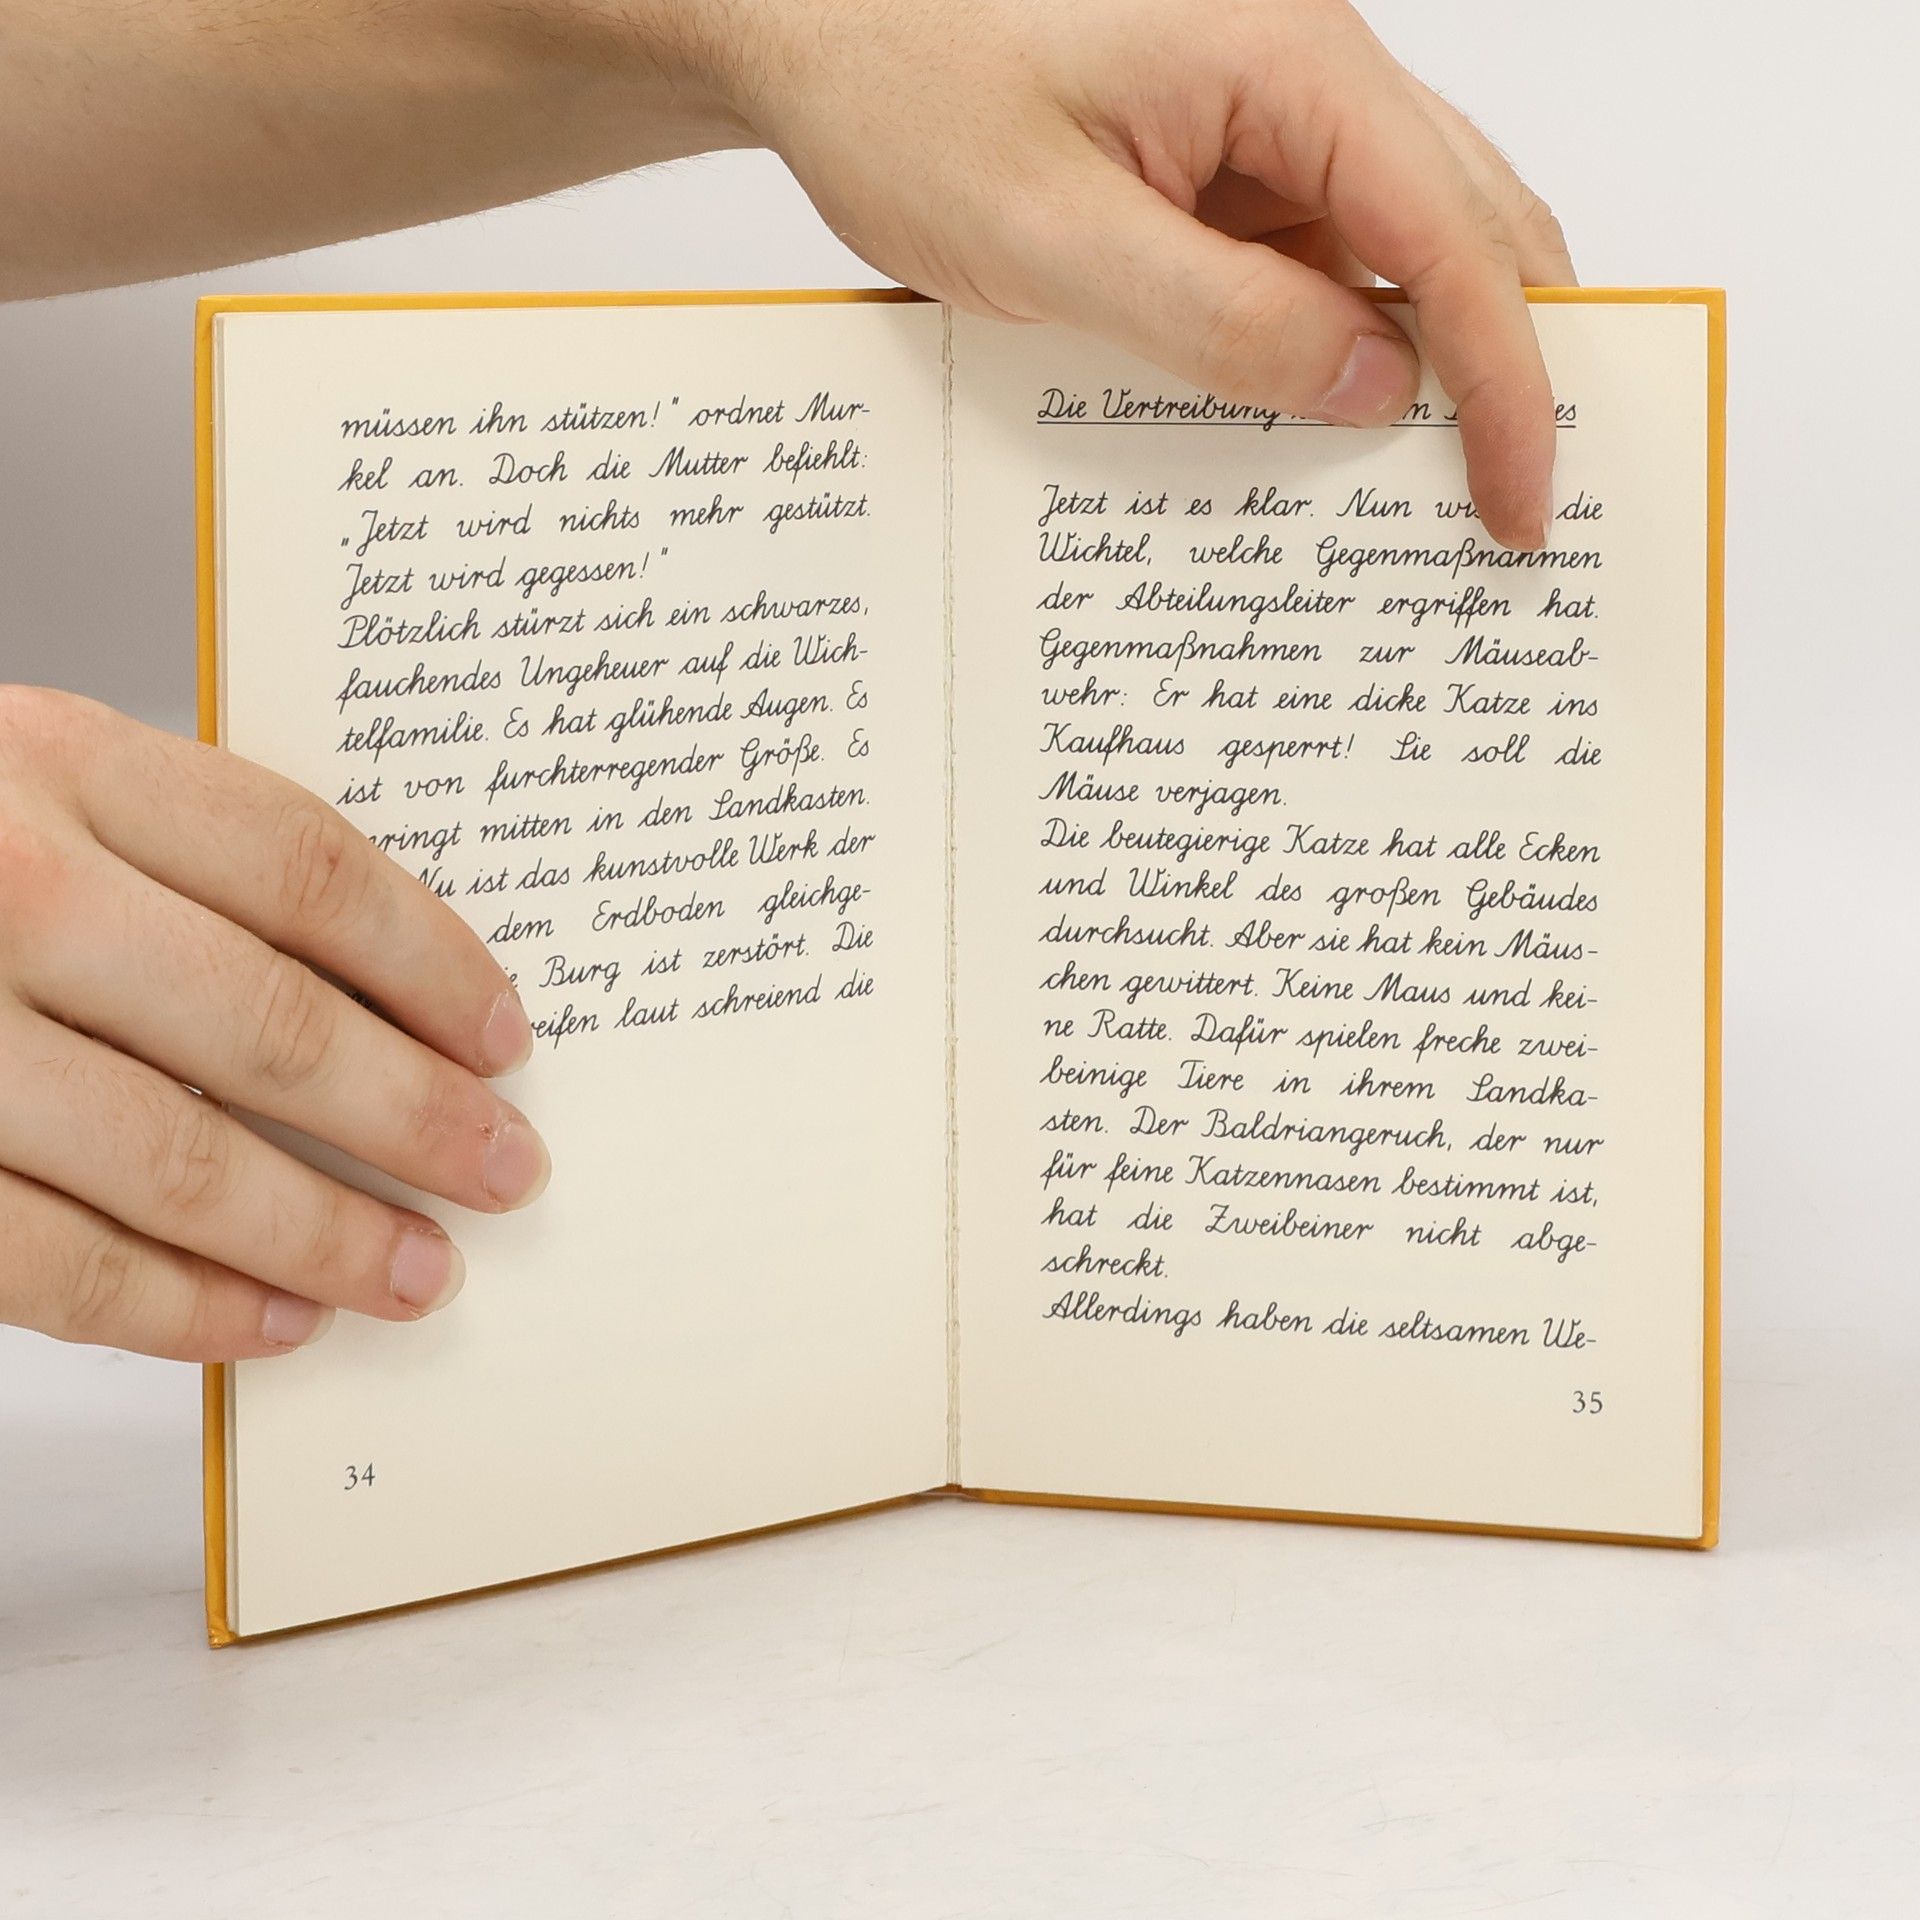 müssen ihn stützen!" ordnet Mur-
kel an. Doch die Mutter befiehlt:
„Jetzt wird nichts mehr gestützt.
Jetzt wird gegessen!"
Plötzlich stürzt sich ein schwarzes,
fauchendes Ungeheuer auf die Wich-
telfamilie. Es hat glühende Augen. Es
ist von furchterregender Größe. Es
mitten in den Landkasten.
Nu ist das kunstvolle Werk der
dem Erdboden gleichge-
Burg ist zerstört. Die
laut schreiend die
34
Die Vertreibung
Jetzt ist es klar. Nun die
Wichtel, welche Gegenmaßnahmen
der Abteilungsleiter ergriffen hat.
Gegenmaßnahmen zur Mäuseab-
wehr: Er hat eine dicke Katze ins
Kaufhaus gesperrt! Sie soll die
Mäuse verjagen.
Die beutegierige Katze hat alle Ecken
und Winkel des großen Gebäudes
durchsucht. Aber sie hat kein Mäus-
chen gewittert. Keine Maus und kei-
ne Ratte. Dafür spielen freche zwei-
beinige Tiere in ihrem Landka-
sten. Der Baldriangeruch, der nur
für feine Katzennasen bestimmt ist,
hat die Zweibeiner nicht abge-
schreckt.
Allerdings haben die seltsamen We-
35